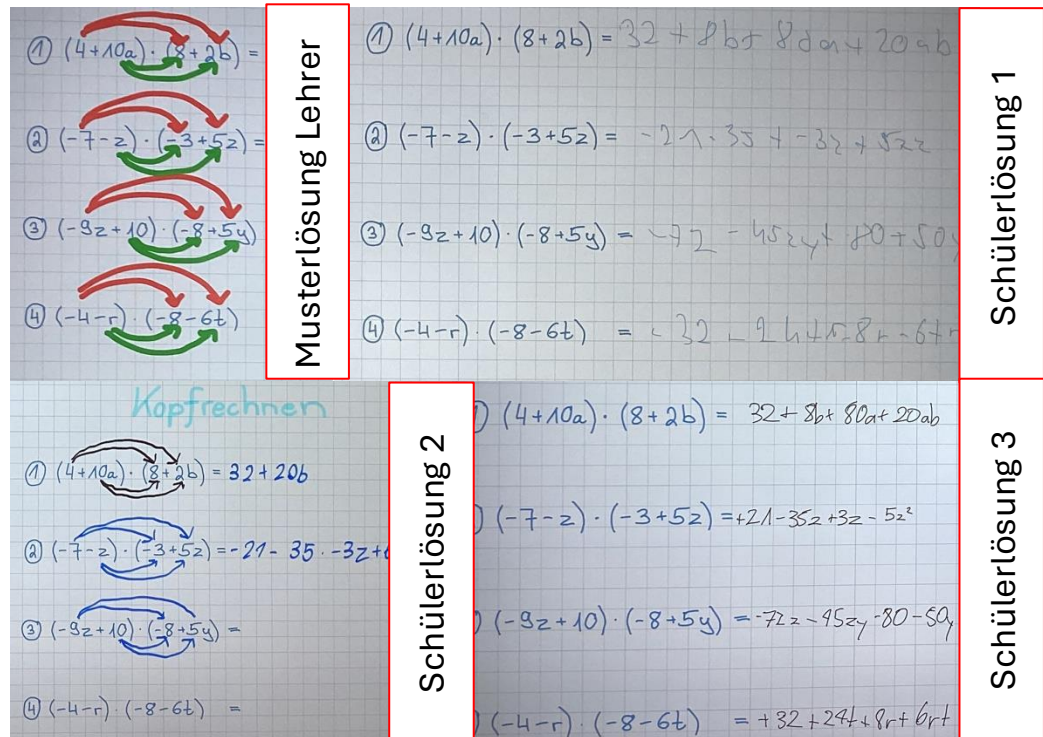 ① (4+10a)·(8+2b) =
② (-7-z)·(-3+5z) =
③ (-9z+10)·(-8+5y)
④ (-4-r)·(-8-6t)
Musterlösung Lehrer
① (4+10a)·(8+2b) = 32 + 8b + 80a + 20ab
② (-7-z)·(-3+5z) = -21-35 + -3z + 5zz
③ (-9z+10)·(-8+5y) = -72 - 45zy + 80 + 50y
④ (-4-r)·(-8-6t) = -32 - 24 8r - 6tr
Schülerlösung 1
Kopfrechnen
① (4+10a)·(8+2b) = 32+20b
② (-7-z)·(-3+5z) = -21- 35 · -3z+
③ (-9z+10)·(-8+5y) =
④ (-4-r)·(-8-6t) =
Schülerlösung 2
) (4+10a)·(8+2b) = 32+8b+80a+20ab
) (-7-z)·(-3+5z) = +21-35z+3z-5z²
) (-9z+10)·(-8+5y) = -72z-45zy-80-50y
) (-4-r)·(-8-6t) = +32+24t+8r+6rt
Schülerlösung 3